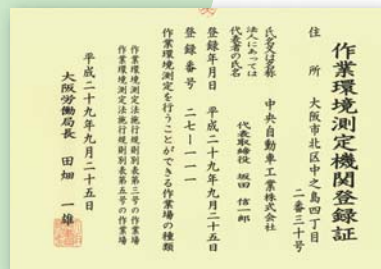 作業環境測定機関登録証
住所 大阪市北区中之島四丁目
二番三十号
氏名又は名称 中央自動車工業株式会社
法人にあっては
代表者の氏名 代表取締役 坂田 信一郎
登録年月日 平成二十九年九月二十五日
登録番号 二七―一一一
作業環境測定を行うことができる作業場の種類
作業環境測定法施行規則別表第三号の作業場
作業環境測定法施行規則別表第五号の作業場
平成二十九年九月二十五日
大阪労働局長 田畑 一雄